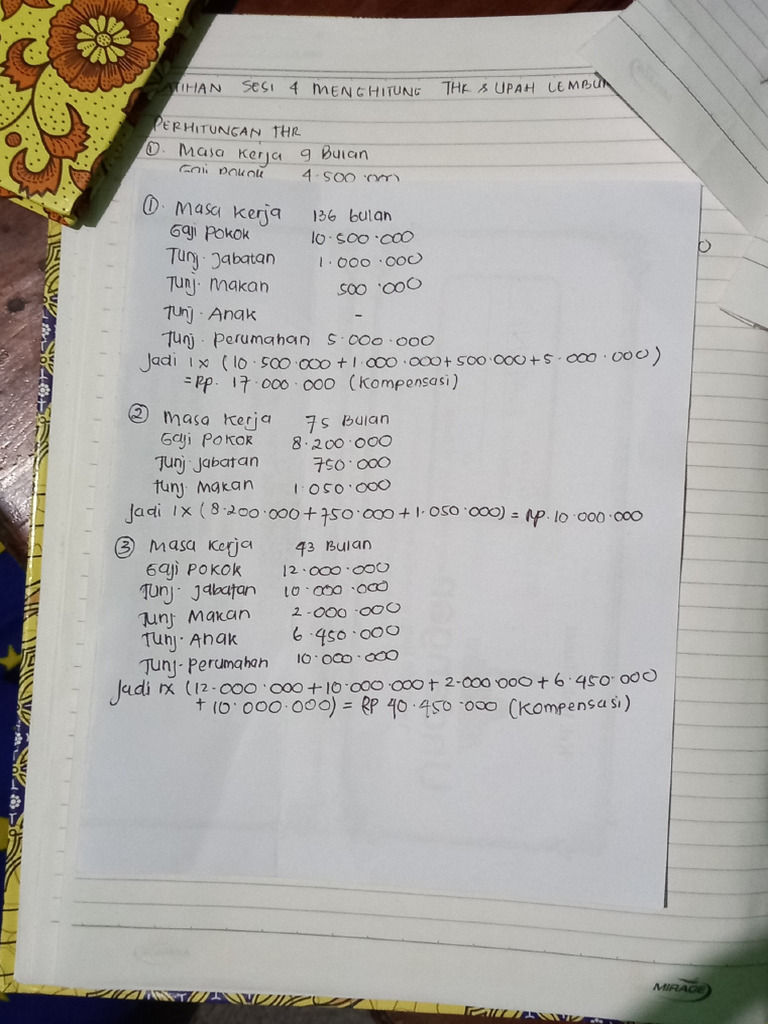 LATIHAN SESI 4 MENGHITUNG THR & UPAH LEMBUR
PERHITUNGAN THR
①. Masa Kerja 9 Bulan
Gaji Pokok 4.500.000
①. Masa Kerja 136 bulan
Gaji Pokok 10.500.000
Tunj. Jabatan 1.000.000
Tunj. Makan 500.000
Tunj. Anak -
Tunj. Perumahan 5.000.000
Jadi 1 x (10.500.000 + 1.000.000 + 500.000 + 5.000.000)
= Rp. 17.000.000 (Kompensasi)
② Masa Kerja 75 Bulan
Gaji Pokok 8.200.000
Tunj. Jabatan 750.000
Tunj. Makan 1.050.000
Jadi 1 x (8.200.000 + 750.000 + 1.050.000) = Rp. 10.000.000
③ Masa Kerja 43 Bulan
Gaji Pokok 12.000.000
Tunj. Jabatan 10.000.000
Tunj. Makan 2.000.000
Tunj. Anak 6.450.000
Tunj. Perumahan 10.000.000
Jadi 1x (12.000.000 + 10.000.000 + 2.000.000 + 6.450.000
+ 10.000.000) = Rp 40.450.000 (Kompensasi)
MIRAGE